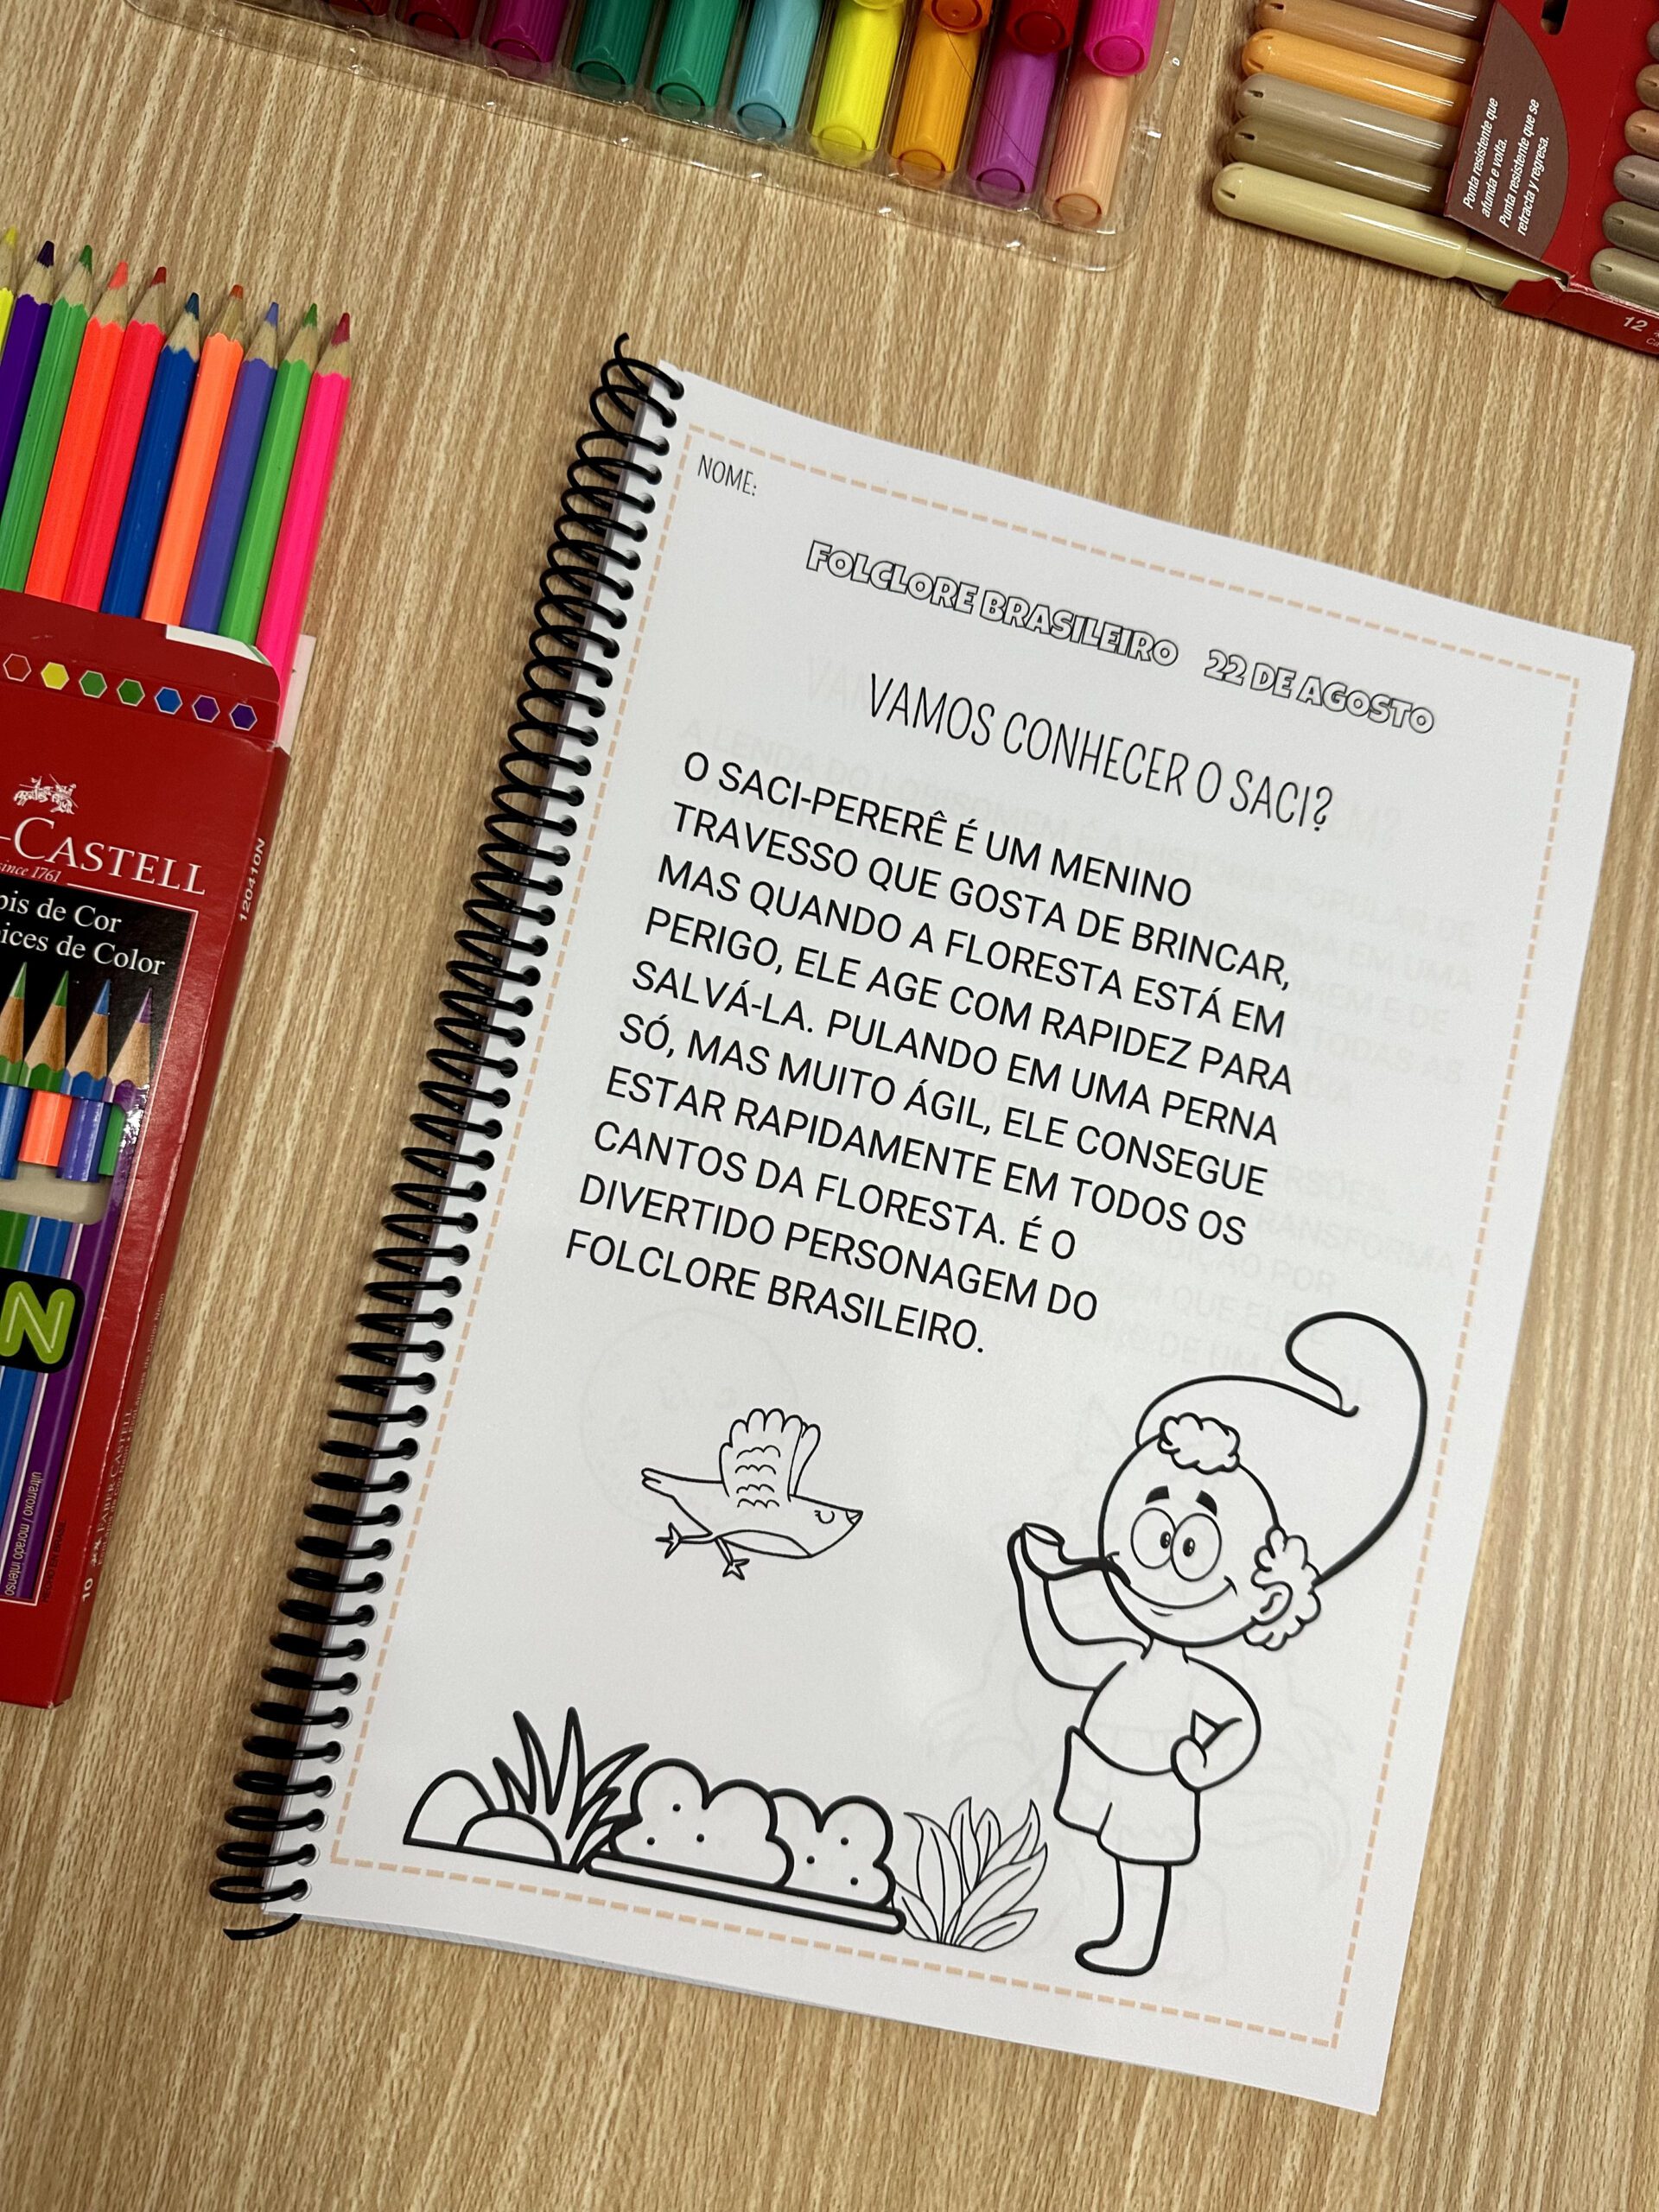 Ponta resistente que
afunda e volta.
Punta resistente que se
retracta y regresa.
12
NOME:
FOLCLORE BRASILEIRO 22 DE AGOSTO
VAMOS CONHECER O SACI?
O SACI-PERERÊ É UM MENINO
TRAVESSO QUE GOSTA DE BRINCAR,
MAS QUANDO A FLORESTA ESTÁ EM
PERIGO, ELE AGE COM RAPIDEZ PARA
SALVÁ-LA. PULANDO EM UMA PERNA
SÓ, MAS MUITO ÁGIL, ELE CONSEGUE
ESTAR RAPIDAMENTE EM TODOS OS
CANTOS DA FLORESTA. É O
DIVERTIDO PERSONAGEM DO
FOLCLORE BRASILEIRO.
-CASTELL
since 1761
120410N
pis de Cor
ices de Color
N
ultrarroxo / morado intenso
10
FABER-CASTELL